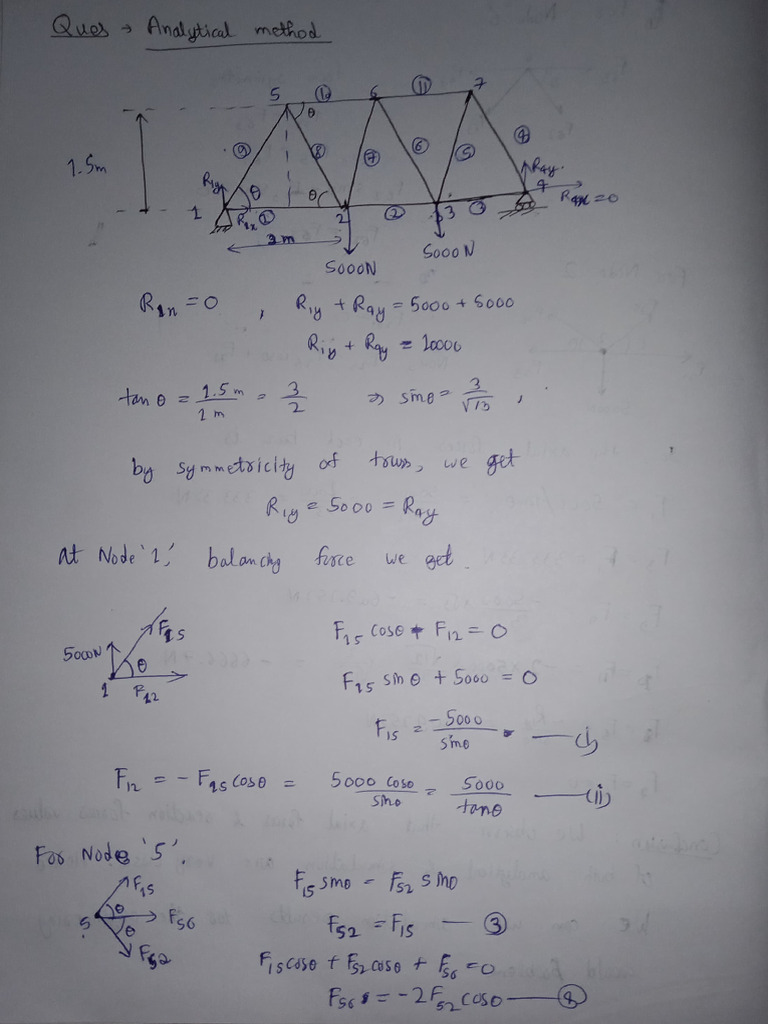 Ques → Analytical method
5 ⑩ 6 ⑪ 7
θ
1.5m
⑨ ⑧ ⑦ ⑥ ⑤ ④
R1y θ θ R4y
1 R1x ① 2 ② 3 ③ 4 R4x = 0
2m
5000N 5000N
R1x = 0 , R1y + R4y = 5000 + 5000
R1y + R4y = 10000
tan θ = 1.5m / 1m = 3/2 ⇒ sinθ = 3/√13 ,
by symmetricity of truss, we get
R1y = 5000 = R4y
at Node '1', balancing force we get
5000N F15 θ 1 F12
F15 cosθ + F12 = 0
F15 sinθ + 5000 = 0
F15 = -5000 / sinθ — (i)
F12 = - F15 cosθ = 5000 cosθ / sinθ = 5000 / tanθ — (ii)
For Node '5'.
F15 θ 5 F56 θ F52
F15 sinθ = F52 sinθ
F52 = F15 — ③
F15 cosθ + F52 cosθ + F56 = 0
F56 = -2F52 cosθ —